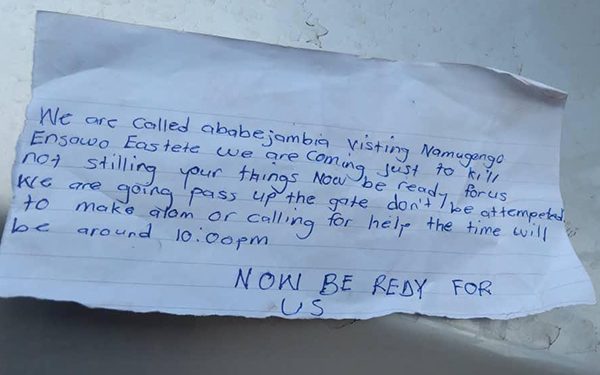 We are called ababejambia visting Namugongo
Ensawo Eastete we are coming just to kill
not stilling your things Now be ready for us
We are going pass up the gate don't be attempeted
to make alam or calling for help the time will
be around 10:00pm
NOW BE REDY FOR
US